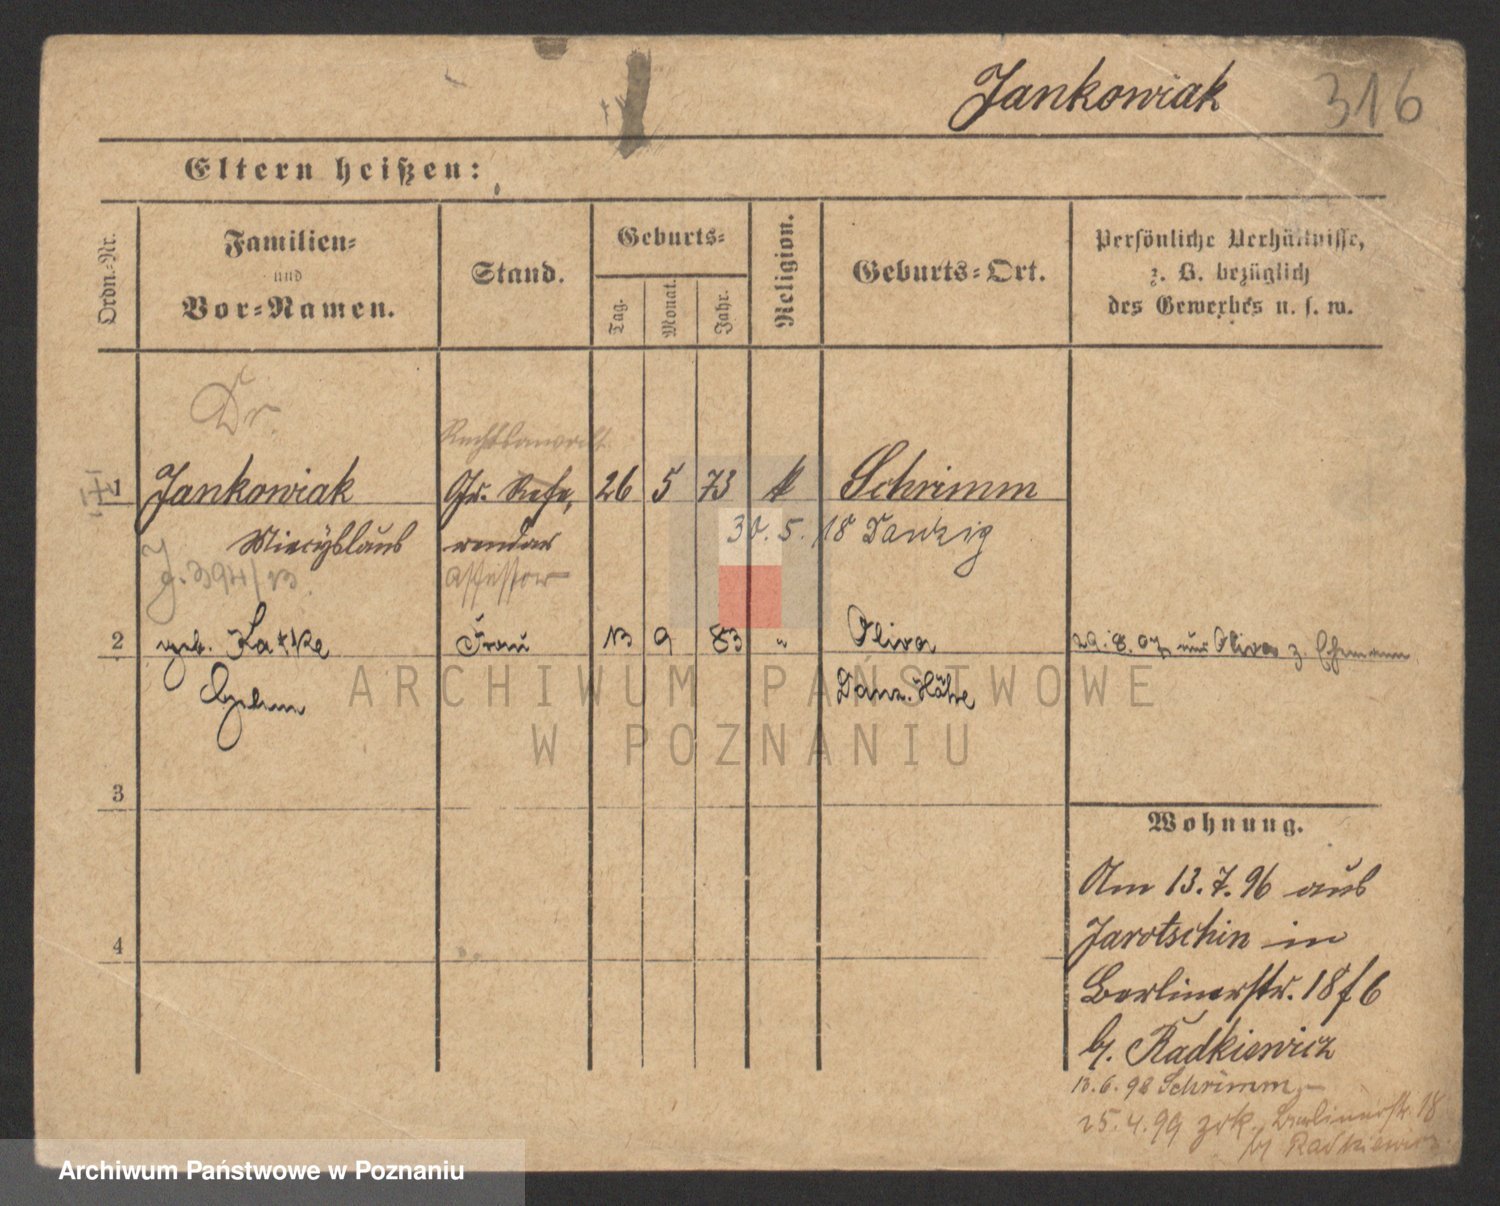 Jankowiak 316
Eltern heißen:
Ordn.-Nr.
Familien-
und
Vor-Namen.
Stand.
Geburts-
Tag.
Monat.
Jahr.
Religion.
Geburts-Ort.
Persönliche Verhältnisse,
z. B. bezüglich
des Gewerbes u. s. w.
Dr.
Rechtsanwalt
1 Jankowiak Refe, 26 5 73 k Schrimm
Miecyslaus rendar 30. 5. 18 Danzig
J. 394/13 Assessor
2 geb. Latke Frau 13 9 83 " Oliva 29. 8. 07 aus Oliva z. Ehemann
Danz. Höhe
3
Wohnung.
Am 13.7.96 aus
4 Jarotschin in
Berlinerstr. 18 f 6
b. Radkiewicz
13.6.98 Schrimm
25.4.99 zrk. Berlinerstr. 18
b/ Radkiewicz
ARCHIWUM PAŃSTWOWE
W POZNANIU
Archiwum Państwowe w Poznaniu